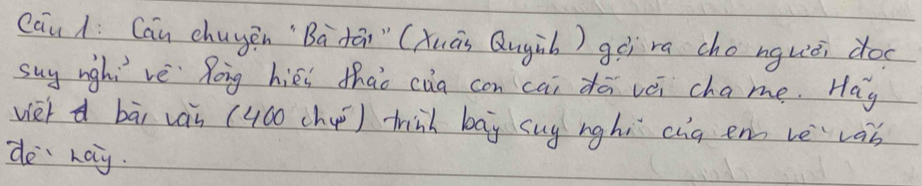 Câu 1: Câu chuyện "Bà tôi" (Xuân Quỳnh) gợi ra cho người đọc
suy nghĩ về lòng hiếu thảo của con cái đối với cha mẹ. Hãy
viết bài văn (400 chữ) trình bày suy nghĩ của em về vấn
đề này.